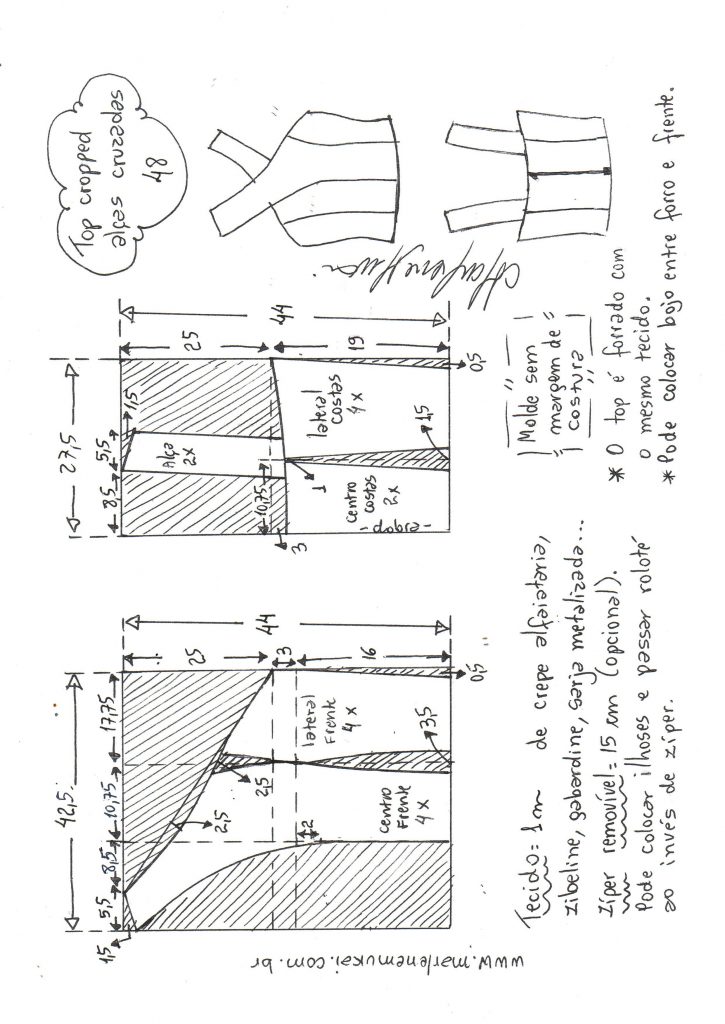 Top cropped
alças cruzadas
48
42,5
5,5
8,5
10,75
17,75
1,5
2,5
2,5
25
3
16
44
lateral
Frente
4x
Centro
Frente
4x
2
3,5
0,5
27,5
8,5
5,5
1,5
Alça
2x
25
19
44
10,75
3
1
centro
costas
2x
dobra
lateral
costas
4x
1,5
0,5
Molde sem
margem de
costura
Tecido = 1m de crepe alfaiataria,
zibeline, gabardine, sarja metalizada...
Zíper removível = 15 cm (opcional).
Pode colocar ilhoses e passar roloté
ao invés de zíper.
* O top é forrado com
o mesmo tecido.
* Pode colocar bojo entre forro e frente.
www.marlenemukai.com.br